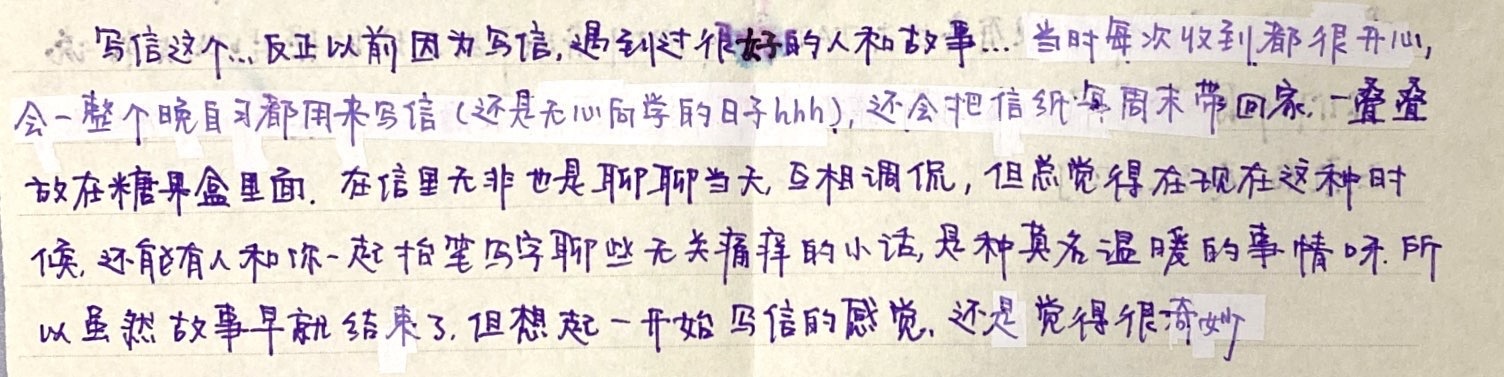 写信这个...反正以前因为写信,遇到过很好的人和故事...当时每次收到都很开心,
会一整个晚自习都用来写信(还是无心向学的日子hhh),还会把信纸每周末带回家.一叠叠
放在糖果盒里面.在信里无非也是聊聊当天,互相调侃,但总觉得在现在这种时
候,还能有人和你一起抬笔写字聊些无关痛痒的小话,是种莫名温暖的事情呀.所
以虽然故事早就结束了,但想起一开始写信的感觉,还是觉得很奇妙